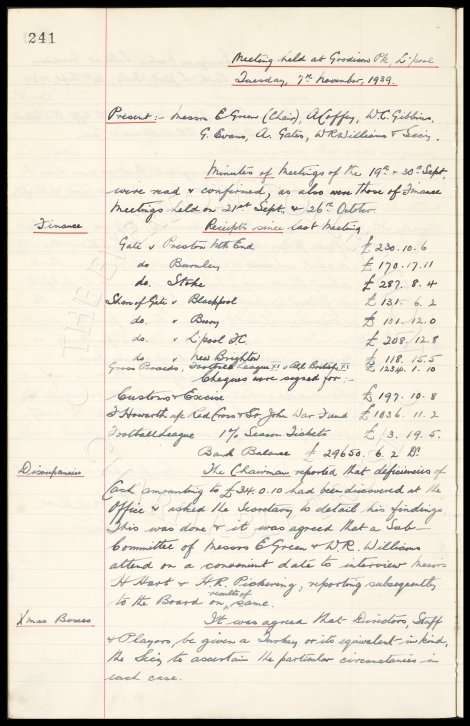 241
Meeting held at Goodison Pk, L'pool
Tuesday, 7th November, 1939.
Present:- Messrs E Green (Chair), A Coffey, W.C. Gibbins,
G. Evans, A. Gates, W R Williams & Secy.
Minutes of Meetings of the 19th & 30th Sept.
were read & confirmed, as also were those of Finance
Meetings held on 21st Sept. & 26th October.
Finance Receipts since last Meeting
Gate v Preston Nth End £ 230.10.6
do Burnley £ 170.17.11
do. Stoke £ 287.8.4
Share of Gate v Blackpool £ 131.6.2
do. v Bury £ 101.12.0
do. v L'pool F.C. £ 208.12.8
do. v New Brighton £ 118.15.5
Gross Proceeds, Football League XI v All British XI £ 1234.1.10
Cheques were signed for:-
Customs & Excise £ 197.10.8
T Howorth a/c Red Cross & St. John War Fund £ 1036.11.2
Football League 1% Season Tickets £ 3.19.5.
Bank Balance £ 29650.6.2 Dr
Discrepancies The Chairman reported that deficiencies of
Cash amounting to £34.0.10 had been discovered at the
Office & asked the Secretary to detail his findings.
This was done & it was agreed that a Sub-
Committee of Messrs E Green & W.R. Williams
attend on a convenient date to interview Messrs
H Hart & H.R. Pickering, reporting subsequently
to the Board on results of same.
Xmas Boxes It was agreed that Directors, Staff
& Players be given a Turkey or its equivalent in kind,
the Secy to ascertain the particular circumstances in
each case.